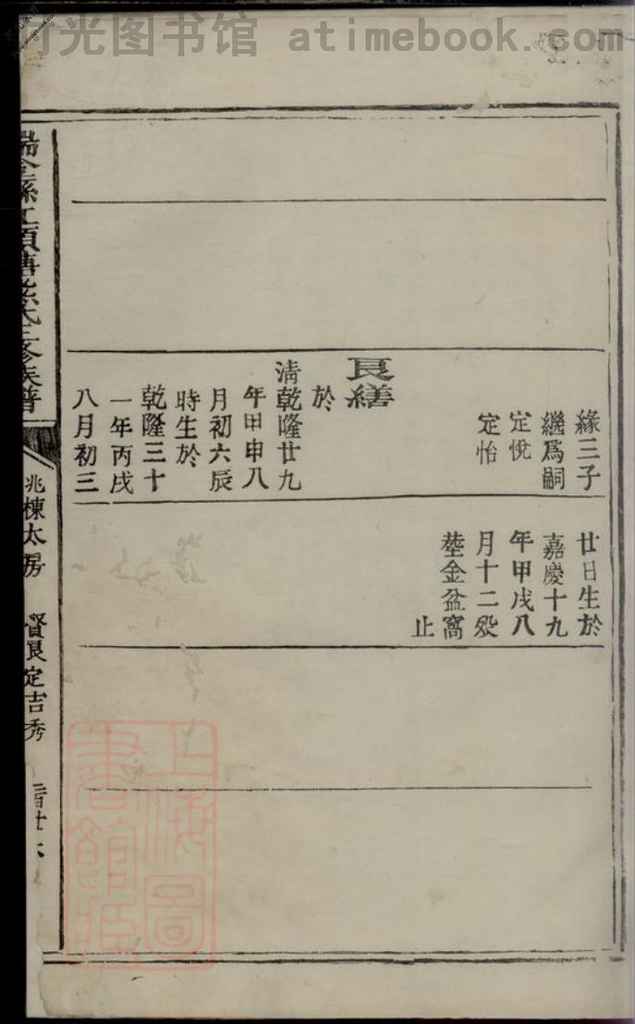 时光图书馆 atimebook.com
緣三子
繼為嗣
定悅
定怡
良繕
於
清乾隆廿九
年甲申八
月初六辰
時生於
乾隆三十
一年丙戌
八月初三
廿日生於
嘉慶十九
年甲戌八
月十二歿
塟金盆窩
止
兆棟太房
賢良定吉秀